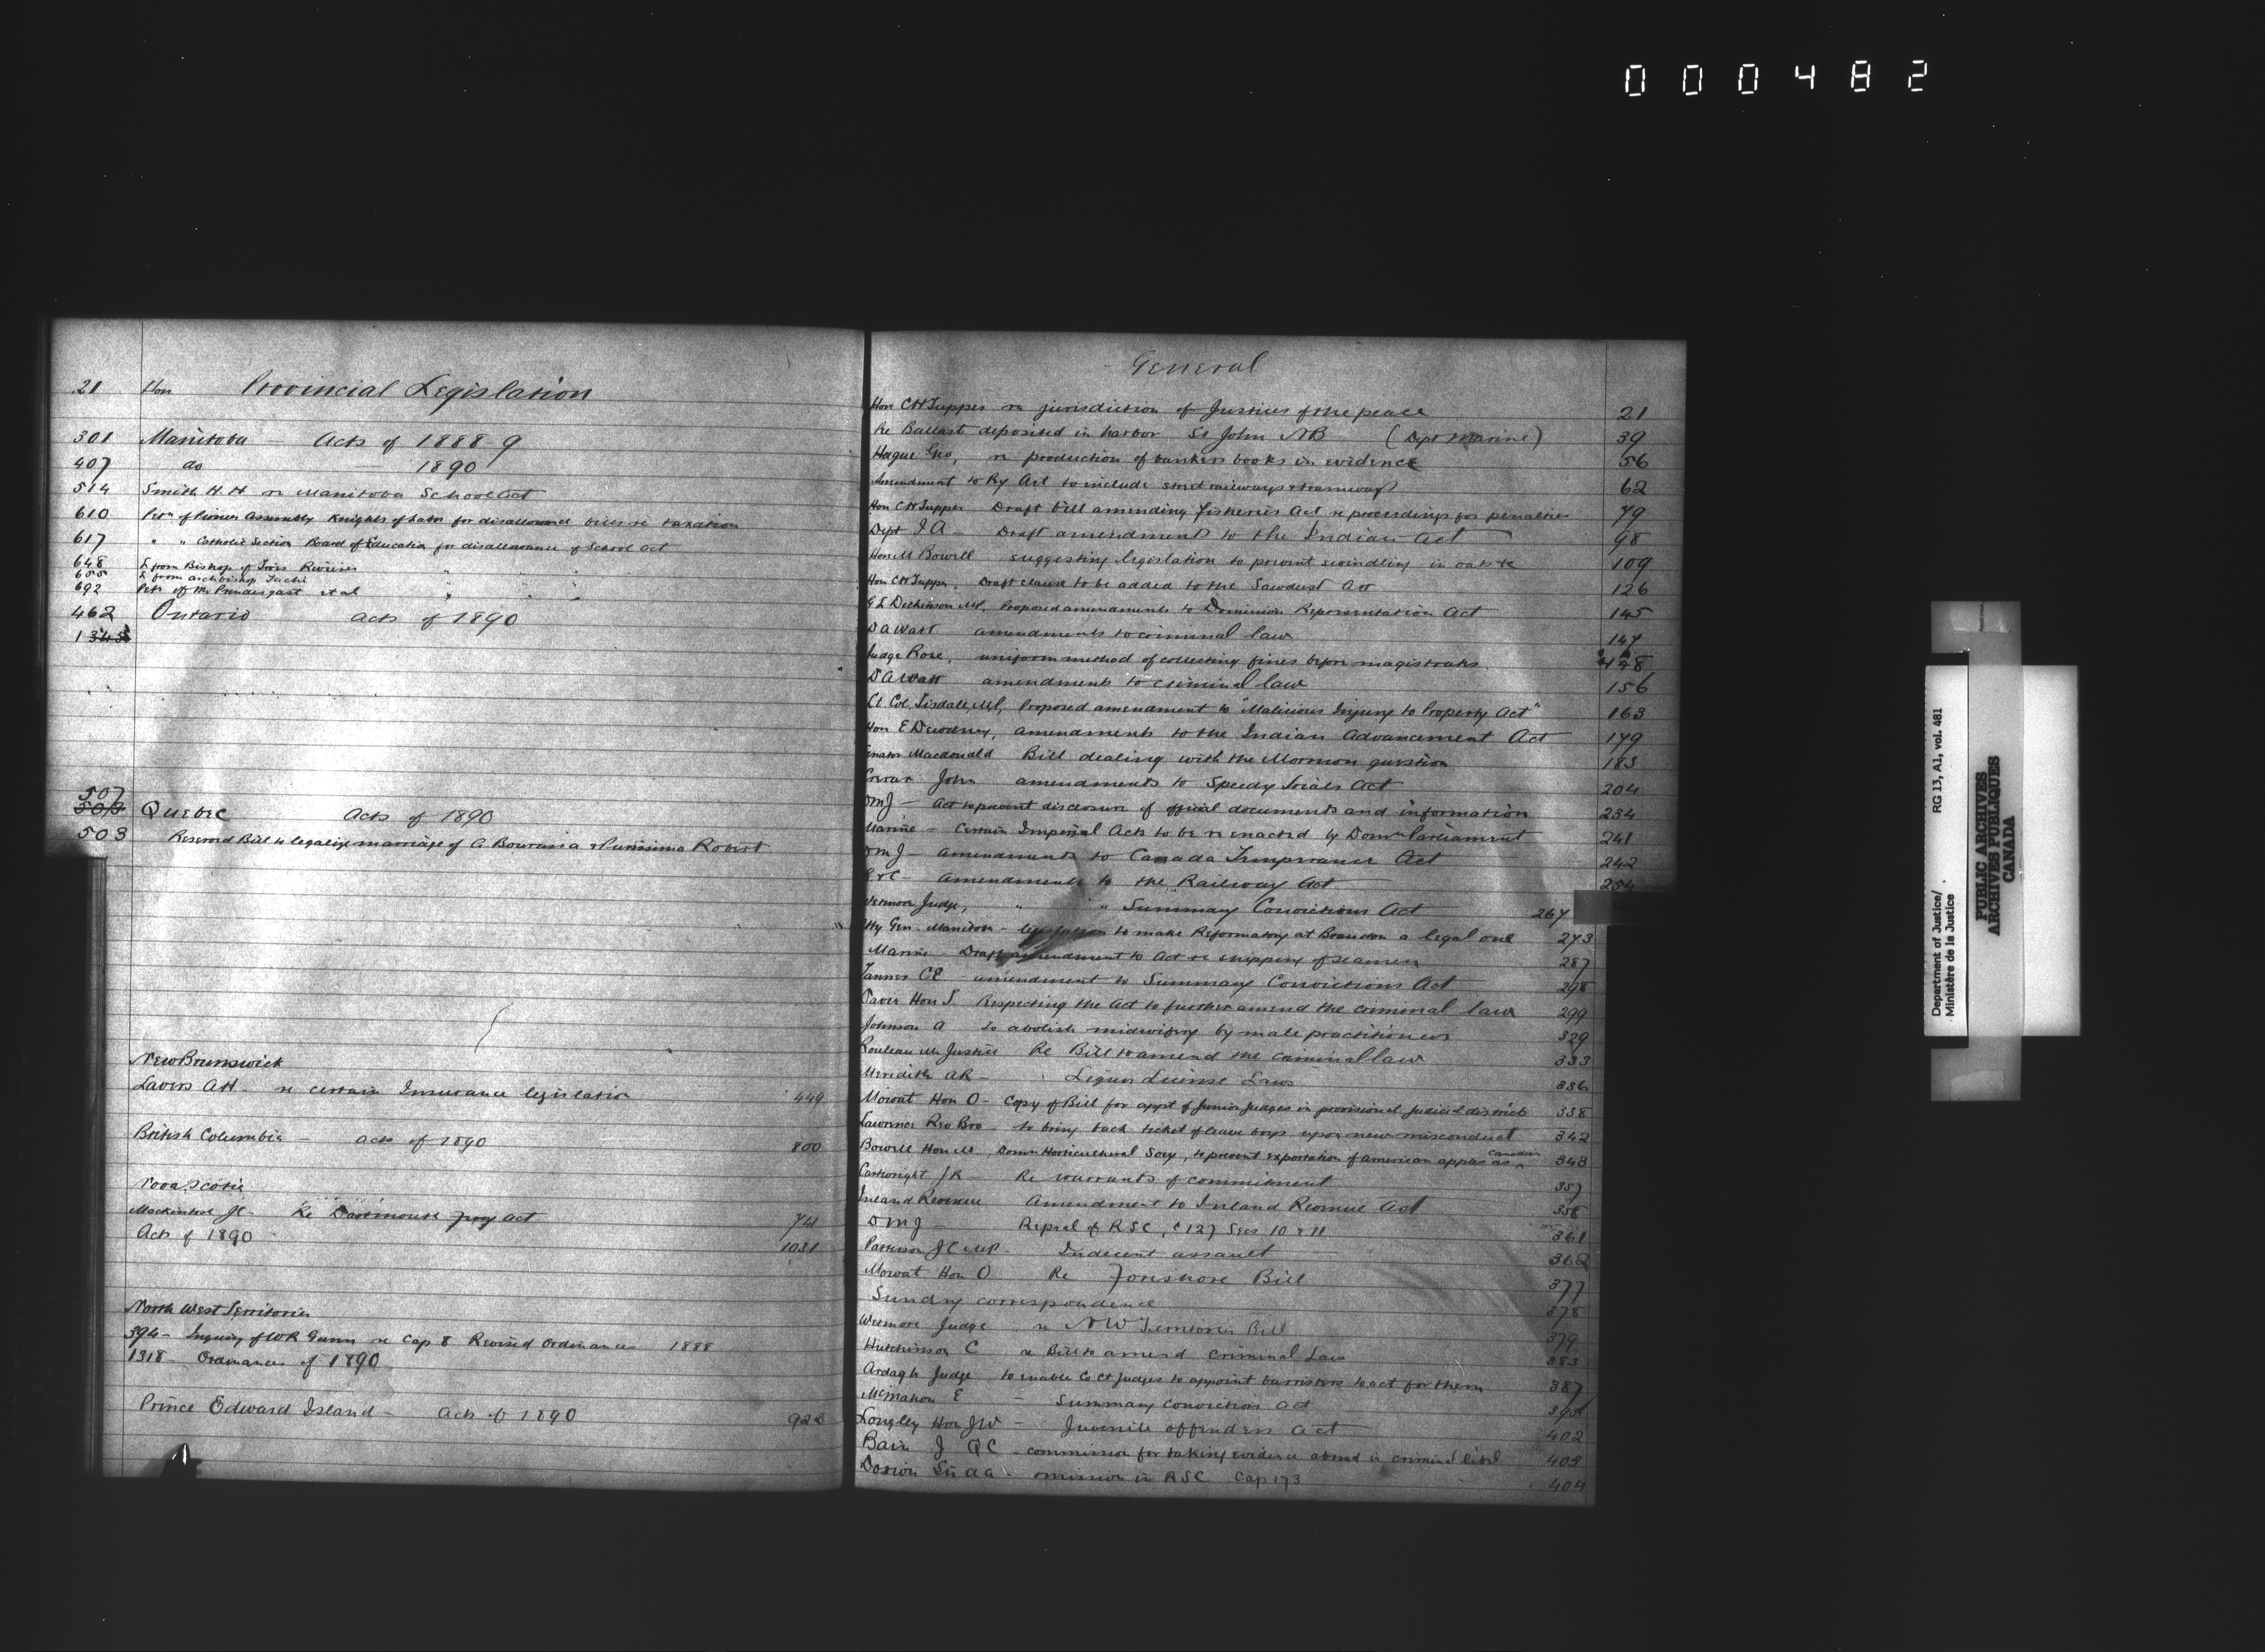 000482
21 Hon Provincial Legislation
301 Manitoba - Acts of 1888 9
407 do 1890
514 Smith H. H. re Manitoba School Act
610 Petn of Pioneer Assembly Knights of Labor for disallowance bill re taxation
617 " " Catholic Section Board of Education for disallowance of School Act
648 L from Bishop of Trois Rivieres " " "
655 L from Archbishop Tache
692 Petn of Mr Prendergast et al " " "
462 Ontario acts of 1890
1345
507
503 Quebec Acts of 1890
503 Reserved Bill to legalize marriage of A. Bourassa & Robert
New Brunswick
Lavers AH - re certain Insurance legislation 449
British Columbia - acts of 1890 800
Nova Scotia
Mackintosh JC - Re Dartmouth Act 741
Acts of 1890 1031
North West Territories
394 - Inquiry of WR Gunn re Cap 8 Revised Ordinances 1888
1318 - Ordinances of 1890
Prince Edward Island - Acts of 1890 923
General
Hon CH Tupper re jurisdiction of Justices of the peace 21
Re Ballast deposited in harbor St John NB (Dept Marine) 39
Hague Geo, re production of bankers books in evidence 56
Amendment to Ry Act to include street railways & tramways 62
Hon CH Tupper Draft bill amending Fisheries Act re proceedings for penalties 79
Dept I A Draft amendment to the Indian Act 98
Hon M Bowell suggesting legislation to prevent swindling in oats &c 109
Hon CH Tupper, Draft clause to be added to the Sawdust Act 126
G L Dickinson MP, Proposed amendments to Dominion Representation Act 145
D A Watt amendments to criminal law 147
Judge Rose, uniform method of collecting fines before magistrates 148
D A Watt amendments to criminal law 156
Lt Col. Tisdale, MP, Proposed amendment to "Malicious Injury to Property Act" 163
Hon E Dewdney, amendments to the Indian Advancement Act 179
Senator Macdonald Bill dealing with the Mormon question 183
John amendments to Speedy Trials Act 204
DMJ - Act to prevent disclosure of official documents and information 234
Marine - Certain Imperial Acts to be re enacted by Domn Parliament 241
DMJ - amendments to Canada Temperance Act 242
R & C - amendments to the Railway Act 254
Wetmore Judge, " " Summary Convictions Act 267
Atty Gen. Manitoba - legislation to make Reformatory at Brandon a legal one 273
Marine - Draft amendment to Act re shipping of seamen 287
Tanner CE amendment to Summary Convictions Act 298
Power Hon S. Respecting the Act to further amend the criminal law 299
Johnson A to abolish midwifery by male practitioners 329
Rouleau Mr Justice Re Bill to amend the criminal law 333
Meredith AR - Liquor License Laws 336
Mowat Hon O - Copy of Bill for appt of Junior Judges in provisional judicial districts 338
Lawrence Rev Bro - to bring back ticket of leave boys upon new misconduct 342
Bowell Hon M, Domn Horticultural Socy, to prevent exportation of American apples as Canadian 343
Cartwright JR - Re warrants of commitment 357
Inland Revenue Amendment to Inland Revenue Act 358
DMJ - Repeal of RSC, c 127 Secs 10 & 11 361
Patterson JC MP - Indecent assault 368
Mowat Hon O Re Foreshore Bill 377
Sundry correspondence 378
Wetmore Judge re NW Territories Bill 379
Hutchinson C re Bill to amend Criminal Law 383
Ardagh Judge to enable Co Ct Judges to appoint barristers to act for them 387
McMahon E - Summary Conviction Act 395
Longley Hon JW - Juvenile offenders Act 402
Bain J QC - commission for taking evidence abroad in criminal libel 403
Dorion Sir AA - omission in RSC Cap 173 404
Department of Justice/
Ministère de la Justice
RG 13, A1, vol. 481
PUBLIC ARCHIVES
ARCHIVES PUBLIQUES
CANADA